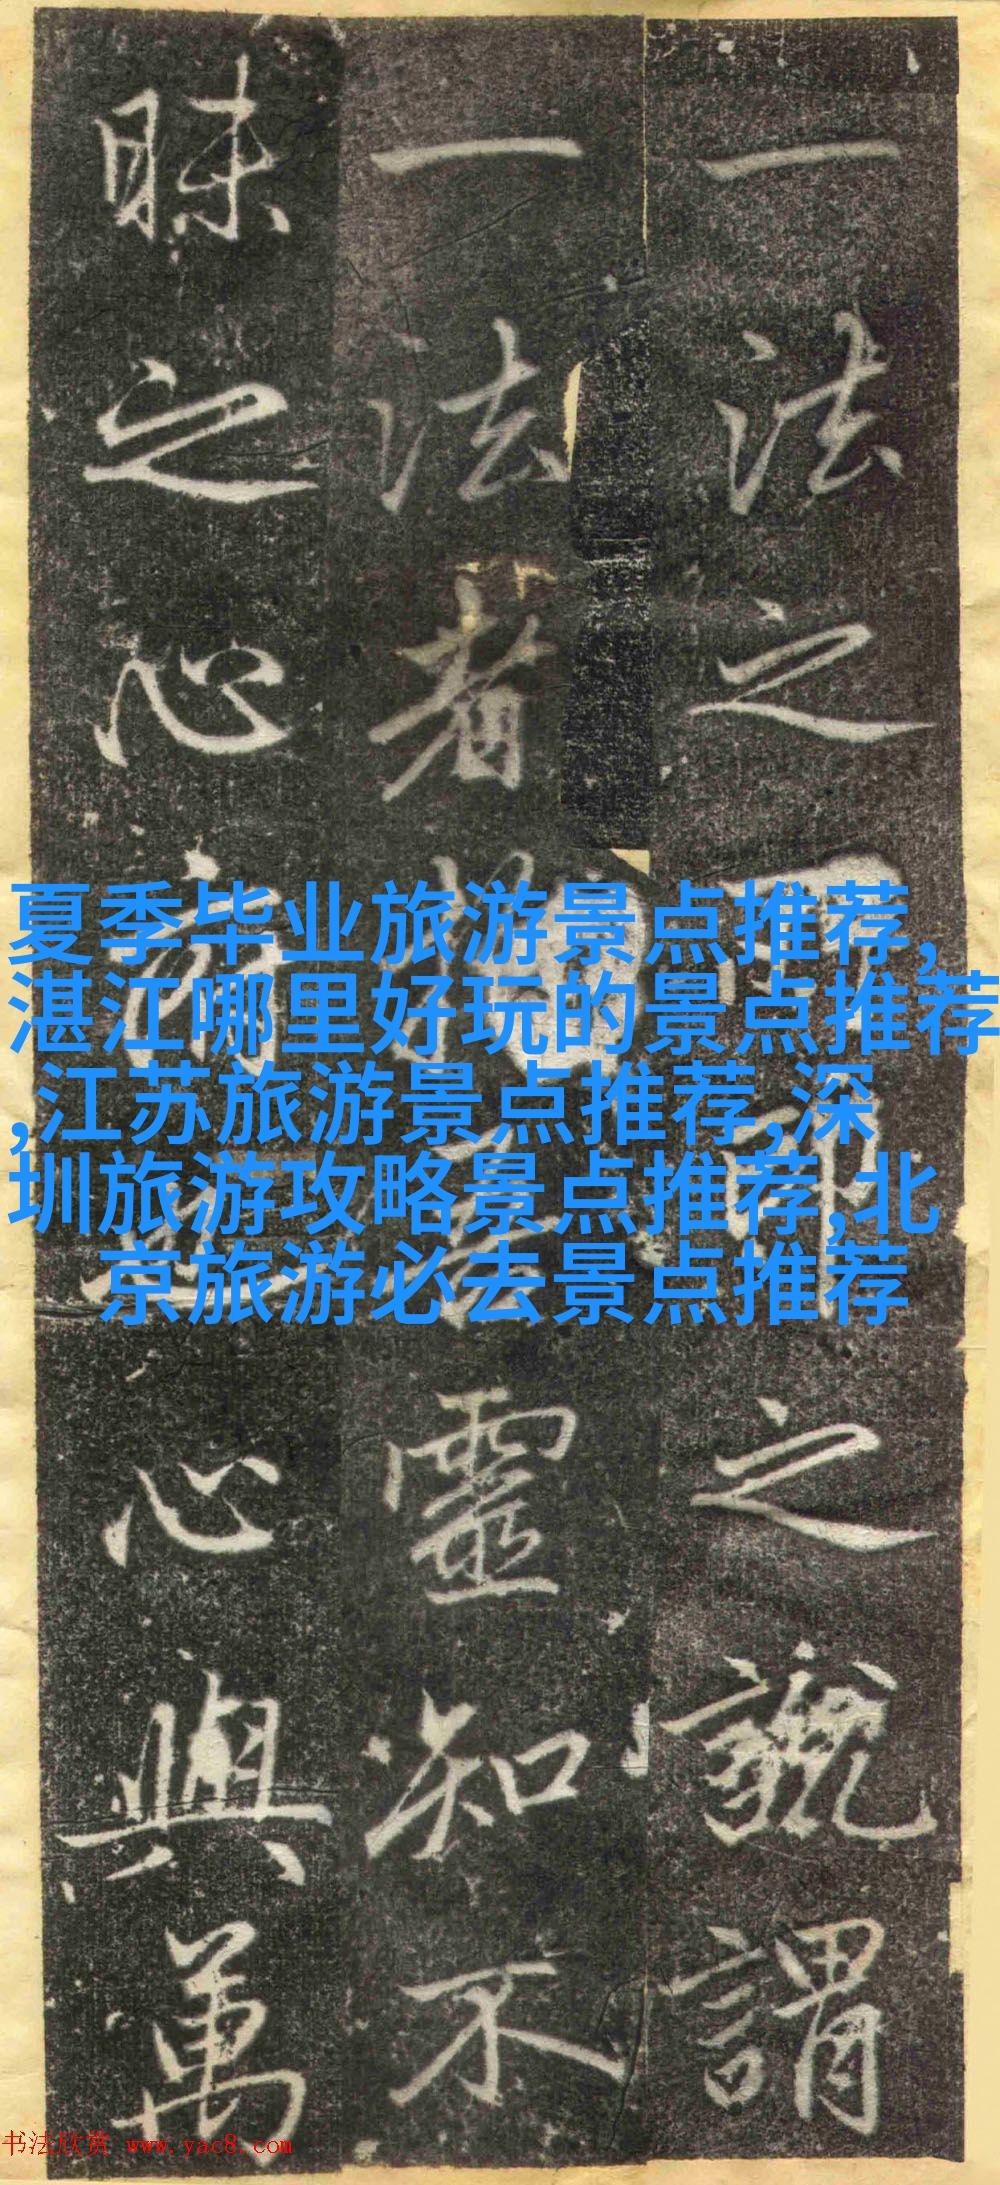 一法之之謂
一法者靈知不
昧之心心與萬
夏季毕业旅游景点推荐,
湛江哪里好玩的景点推荐
,江苏旅游景点推荐,深
圳旅游攻略景点推荐,北
京旅游必去景点推荐
书法欣赏 www.yac8.com